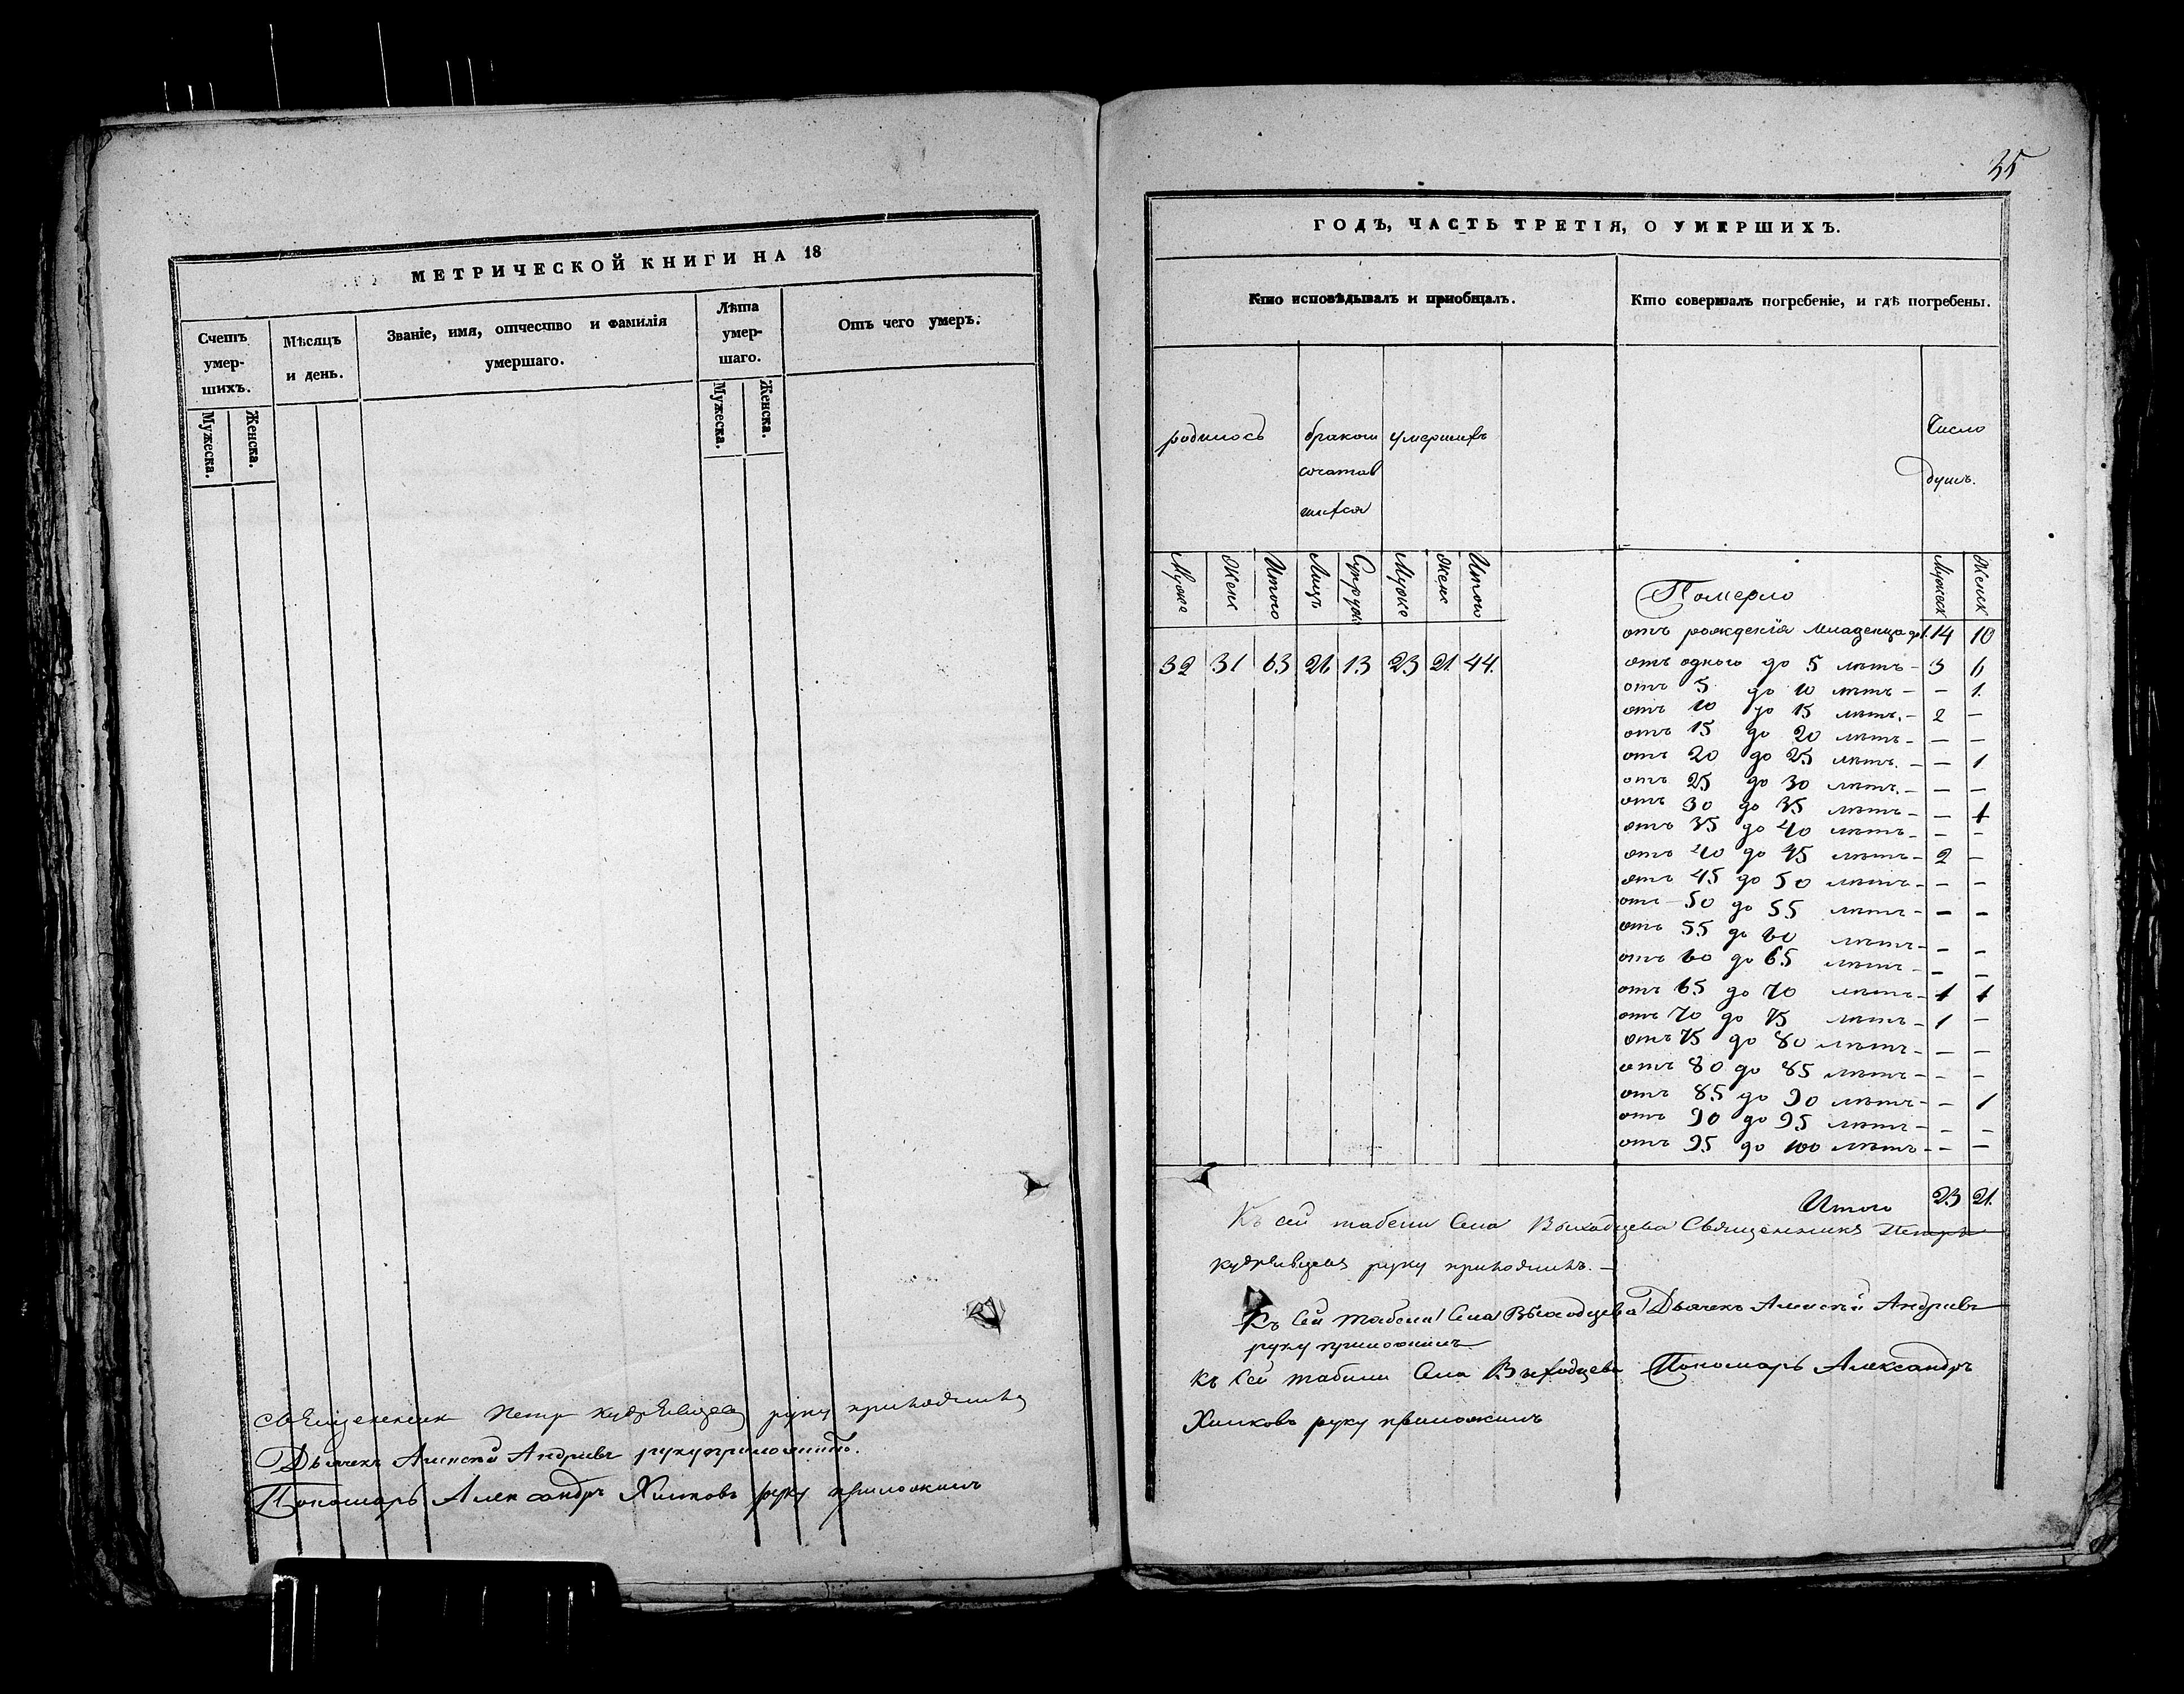 МЕТРИЧЕСКОЙ КНИГИ НА 18
Счетъ умер-шихъ.
Мѣсяцъ и день.
Званіе, имя, отчество и фамилія умершаго.
Лѣта умер-шаго.
Отъ чего умеръ.
Мужеска.
Женска.
Мужеска.
Женска.
Священникъ Петръ Кудрявцевъ руку приложилъ
Дьячекъ Алексѣй Андреевъ руку приложилъ.
Пономарь Александръ Хилковъ руку приложилъ
35
ГОДЪ, ЧАСТЬ ТРЕТІЯ, О УМЕРШИХЪ.
Кто исповѣдывалъ и приобщалъ.
Кто совершалъ погребеніе, и гдѣ погребены.
родилось
бракомъ
сочетав
шихся
умершихъ
Число
душъ.
Муже
Женс
Итого
Лицъ
Супруж
Муже
Женс
Итого
32 31 63 26 13 23 21 44.
Померло
Мужеск
Женск
отъ рожденія младенца до 1. 14 10
отъ одного до 5 лѣтъ - 3 6
отъ 5 до 10 лѣтъ - - 1.
отъ 10 до 15 лѣтъ. - 2 -
отъ 15 до 20 лѣтъ - - -
отъ 20 до 25 лѣтъ. - - 1
отъ 25 до 30 лѣтъ. - - -
отъ 30 до 35 лѣтъ - - 1
отъ 35 до 40 лѣтъ - - -
отъ 40 до 45 лѣтъ - 2 -
отъ 45 до 50 лѣтъ - - -
отъ 50 до 55 лѣтъ - - -
отъ 55 до 60 лѣтъ - - -
отъ 60 до 65 лѣтъ - - -
отъ 65 до 70 лѣтъ - 1 1
отъ 70 до 75 лѣтъ - 1 -
отъ 75 до 80 лѣтъ - - -
отъ 80 до 85 лѣтъ - - -
отъ 85 до 90 лѣтъ - - 1
отъ 90 до 95 лѣтъ - - -
отъ 95 до 100 лѣтъ - - -
Итого 23 21.
Къ сей табели Села Выходцева Священникъ Петръ
Кудрявцевъ руку приложилъ. -
Къ Сей табели Села Выходцева Дьячекъ Алексѣй Андреевъ
руку приложилъ
Къ Сей табели Села Выходцева Пономарь Александръ
Хилковъ руку приложилъ